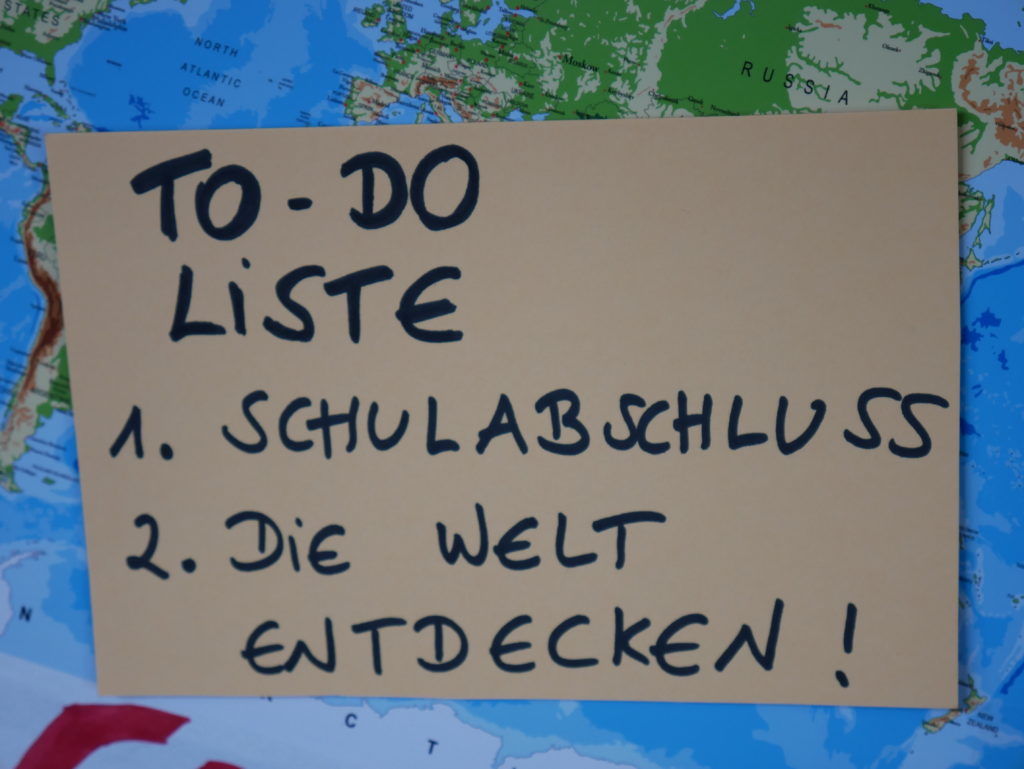 STATES
NORTH
ATLANTIC
OCEAN
Moscow
RUSSIA
TO-DO
LiSTE
1. SCHULABSCHLUSS
2. DiE WELT
ENTDECKEN!
N
C
T
NEW
ZEALAND